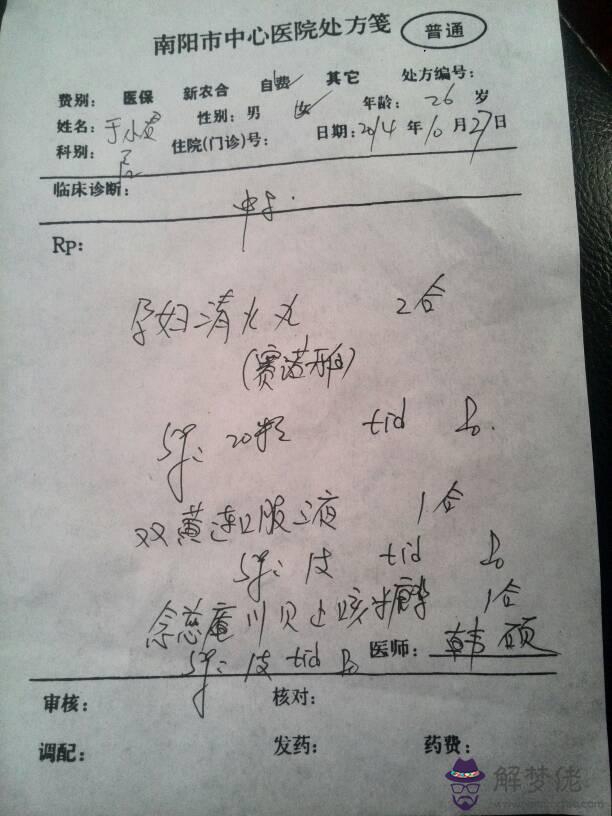 南阳市中心医院处方笺 普通
费别: 医保 新农合 自费✓ 其它 处方编号:
姓名: 于小 性别: 男 女✓ 年龄: 26 岁
科别: 住院(门诊)号: 日期: 2014 年 10 月 27 日
临床诊断:
Rp:
孕妇清火丸 2合
(赛诺雅)
Sig: 20粒 tid Po.
双黄连口服液 1合
Sig: 1支 tid Po
念慈庵川贝止咳糖浆 1合
Sig: 1支 tid Po 医师: 韩硕
审核: 核对:
调配: 发药: 药费:
解梦佬